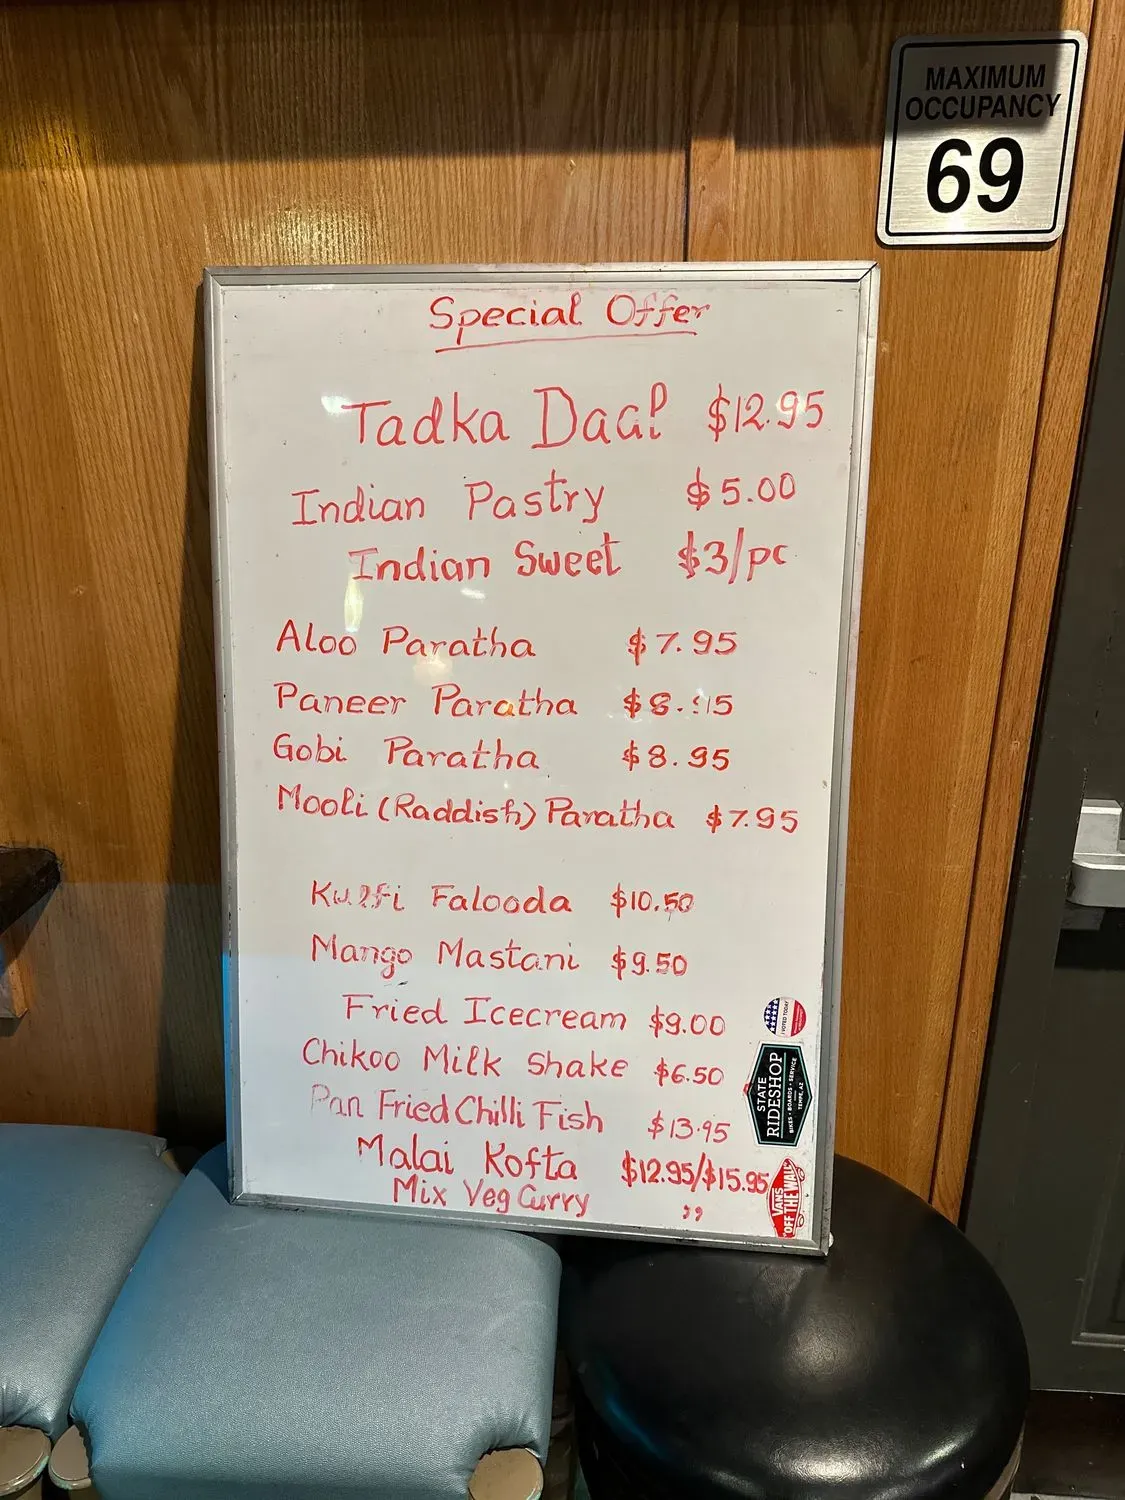 MAXIMUM
OCCUPANCY
69
Special Offer
Tadka Daal $12.95
Indian Pastry $5.00
Indian Sweet $3/pc
Aloo Paratha $7.95
Paneer Paratha $8.95
Gobi Paratha $8.95
Mooli (Raddish) Paratha $7.95
Kulfi Falooda $10.50
Mango Mastani $9.50
Fried Icecream $9.00
Chikoo Milk Shake $6.50
Pan Fried Chilli Fish $13.95
Malai Kofta $12.95/$15.95
Mix Veg Curry ,,
I VOTED TODAY
STATE
RIDESHOP
BIKES • BOARDS • SERVICE
TEMPE, AZ
VANS
"OFF THE WALL"